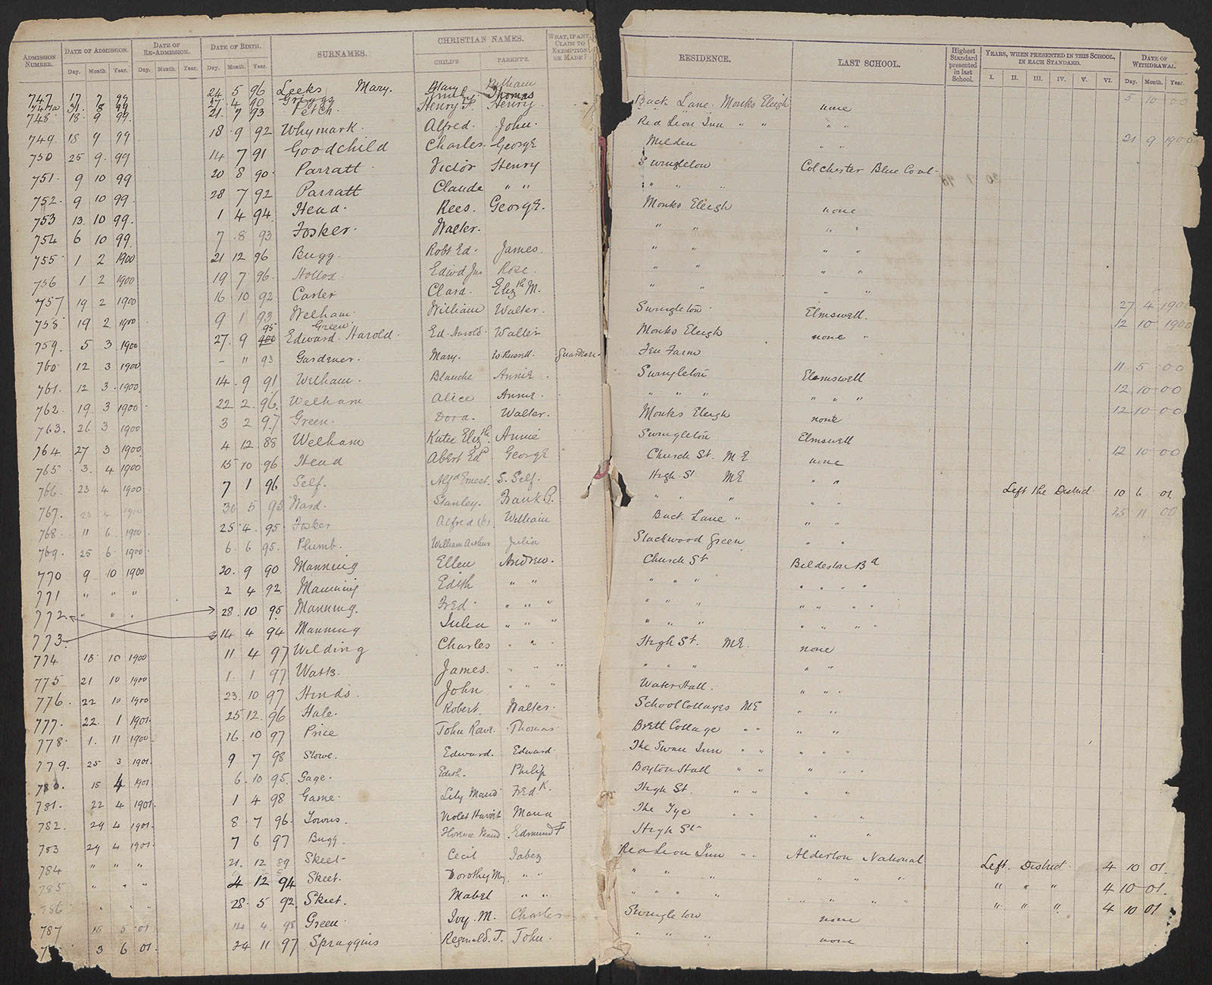 ADMISSION NUMBER. DATE OF ADMISSION. DATE OF RE-ADMISSION. DATE OF BIRTH. SURNAMES. CHRISTIAN NAMES. WHAT, IF ANY, CLAIM TO EXEMPTION OR MADE? RESIDENCE. LAST SCHOOL. Highest Standard presented in last School. YEARS, WHEN PRESENTED IN THIS SCHOOL, IN EACH STANDARD. DATE OF WITHDRAWAL.
Day. Month. Year. Day. Month. Year. Day. Month. Year. CHILD'S. PARENT'S. I. II. III. IV. V. VI. Day. Month. Year.
747 17 7 99 24 5 96 Leeks Mary. William
27 4 90 Grigg Thomas
748 18 9 99 21 7 93 Petch Henry F. Henry Back Lane Monks Eleigh none 5 10 00
749 18 9 99 18 9 92 Whymark Alfred John Red Lion Inn " " " "
750 25 9 99 14 7 91 Goodchild Charles George Milden " " 21 9 1900
751 9 10 99 20 8 90 Parratt Victor Henry Swingleton Colchester Blue Coat
752 9 10 99 28 7 92 Parratt Claude " " " " " "
753 13 10 99 1 4 94 Head Rees George Monks Eleigh none
754 6 10 99 7 8 93 Fosker Walter " " " "
755 1 2 1900 21 12 96 Bugg Robt Ed. James " " " "
756 1 2 1900 19 7 96 Edwd Jas Rose " " " "
757 19 2 1900 16 10 92 Carter Clara Elizth M. " " " "
758 19 2 1900 9 1 93 Welham William Walter Swingleton Elmswell 27 4 1900
759 5 3 1900 27 9 95 Green Edward Harold Ed. Harold Walter Monks Eleigh none 12 10 1900
760 12 3 1900 - 11 93 Gardener Mary W Russell Guardian Fen Farm
761 12 3 1900 14 9 91 Welham Blanche Annie Swingleton Elmswell 11 5 00
762 19 3 1900 22 2 96 Welham Alice Annie " " " " " 12 10 00
763 26 3 1900 3 2 97 Green Dora Walter Monks Eleigh none 12 10 00
764 27 3 1900 4 12 88 Welham Katie Elizth Annie Swingleton Elmswell
765 3 4 1900 15 10 96 Head Albert Ed George Church St. M E none 12 10 00
766 23 4 1900 7 1 96 Self Alfd Ernest S. Self High St M E " "
767 30 5 93 Ward Stanley Frank G. " " " " " Left the District 10 6 01
768 11 6 1900 25 4 95 Fosker Alfred William Back Lane " " " 25 11 00
769 25 6 1900 6 6 95 Plumb William Arthur Julia Stackwood Green " "
770 9 10 1900 20 9 90 Manning Ellen Andrew Church St Bildeston Bd
771 " " " 2 4 92 Manning Edith " " " " " " " "
772 " " " 28 10 95 Manning Fred " " " " " " " " "
773 14 4 94 Manning Julia " " " " " " " " " "
774 15 10 1900 11 4 97 Wilding Charles " " High St. M.E. none
775 21 10 1900 1 1 97 Watts James " " " " " " " "
776 22 10 1900 23 10 97 Hinds John " " " Water Hall " " "
777 22 1 1901 25 12 96 Hale Robert Walter School Cottages M E " "
778 1 11 1900 16 10 97 Price John Thomas Brett Cottage " " " "
779 25 3 1901 9 7 98 Stowe Edward Edward The Swan Inn " " " " "
780 15 4 1901 6 10 95 Gage Edith Philip Boyton Hall " " " " "
781 22 4 1901 1 4 98 Game Lily Maud Fredk High St " " " "
782 29 4 1901 8 7 96 Towns Violet Maria The Tye " "
783 29 4 1901 7 6 97 Bugg Florence Maud Edmund F High St " "
784 " " " 21 12 89 Skeet Cecil Jabez Red Lion Inn " " Alderton National Left District 4 10 01
785 " " " 4 12 94 Skeet Dorothy My " " " " " " " " " " " 4 10 01
786 28 5 92 Skeet Mabel " " " " " " " " " " " 4 10 01
787 15 5 01 14 4 98 Green Ivy M. Charles Swingleton none
3 6 01 24 11 97 Spraggins Reginald T. John " " " none